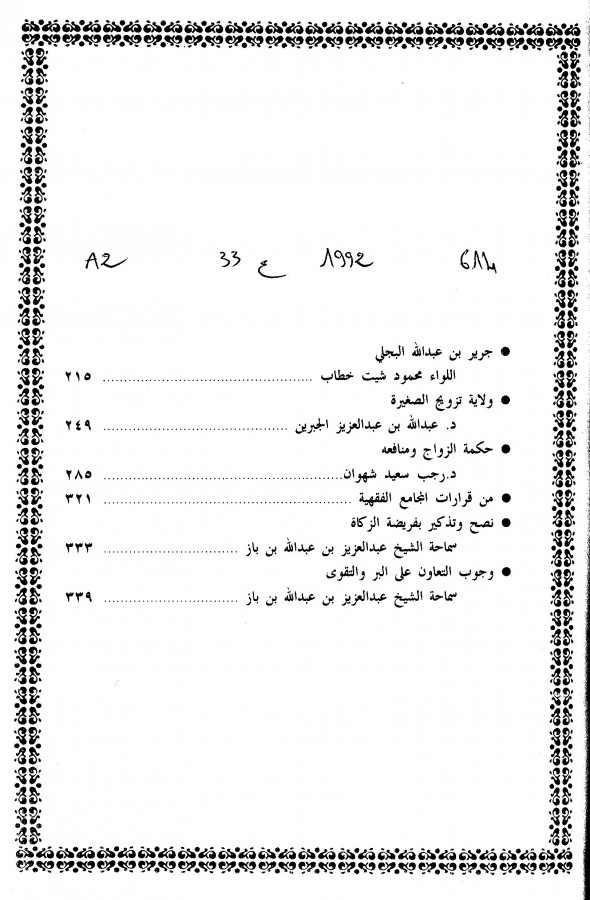 614 1992 ع 33 A2
● جرير بن عبدالله البجلي
اللواء محمود شيت خطاب ........................................ ٢١٥
● ولاية تزويج الصغيرة
د. عبدالله بن عبدالعزيز الجبرين .............................. ٢٤٩
● حكمة الزواج ومنافعه
د.رجب سعيد شهوان ........................................ ٢٨٥
● من قرارات المجامع الفقهية ........................................ ٣٢١
● نصح وتذكير بفريضة الزكاة
سماحة الشيخ عبدالعزيز بن عبدالله بن باز ........................ ٣٣٣
● وجوب التعاون على البر والتقوى
سماحة الشيخ عبدالعزيز بن عبدالله بن باز ........................ ٣٣٩